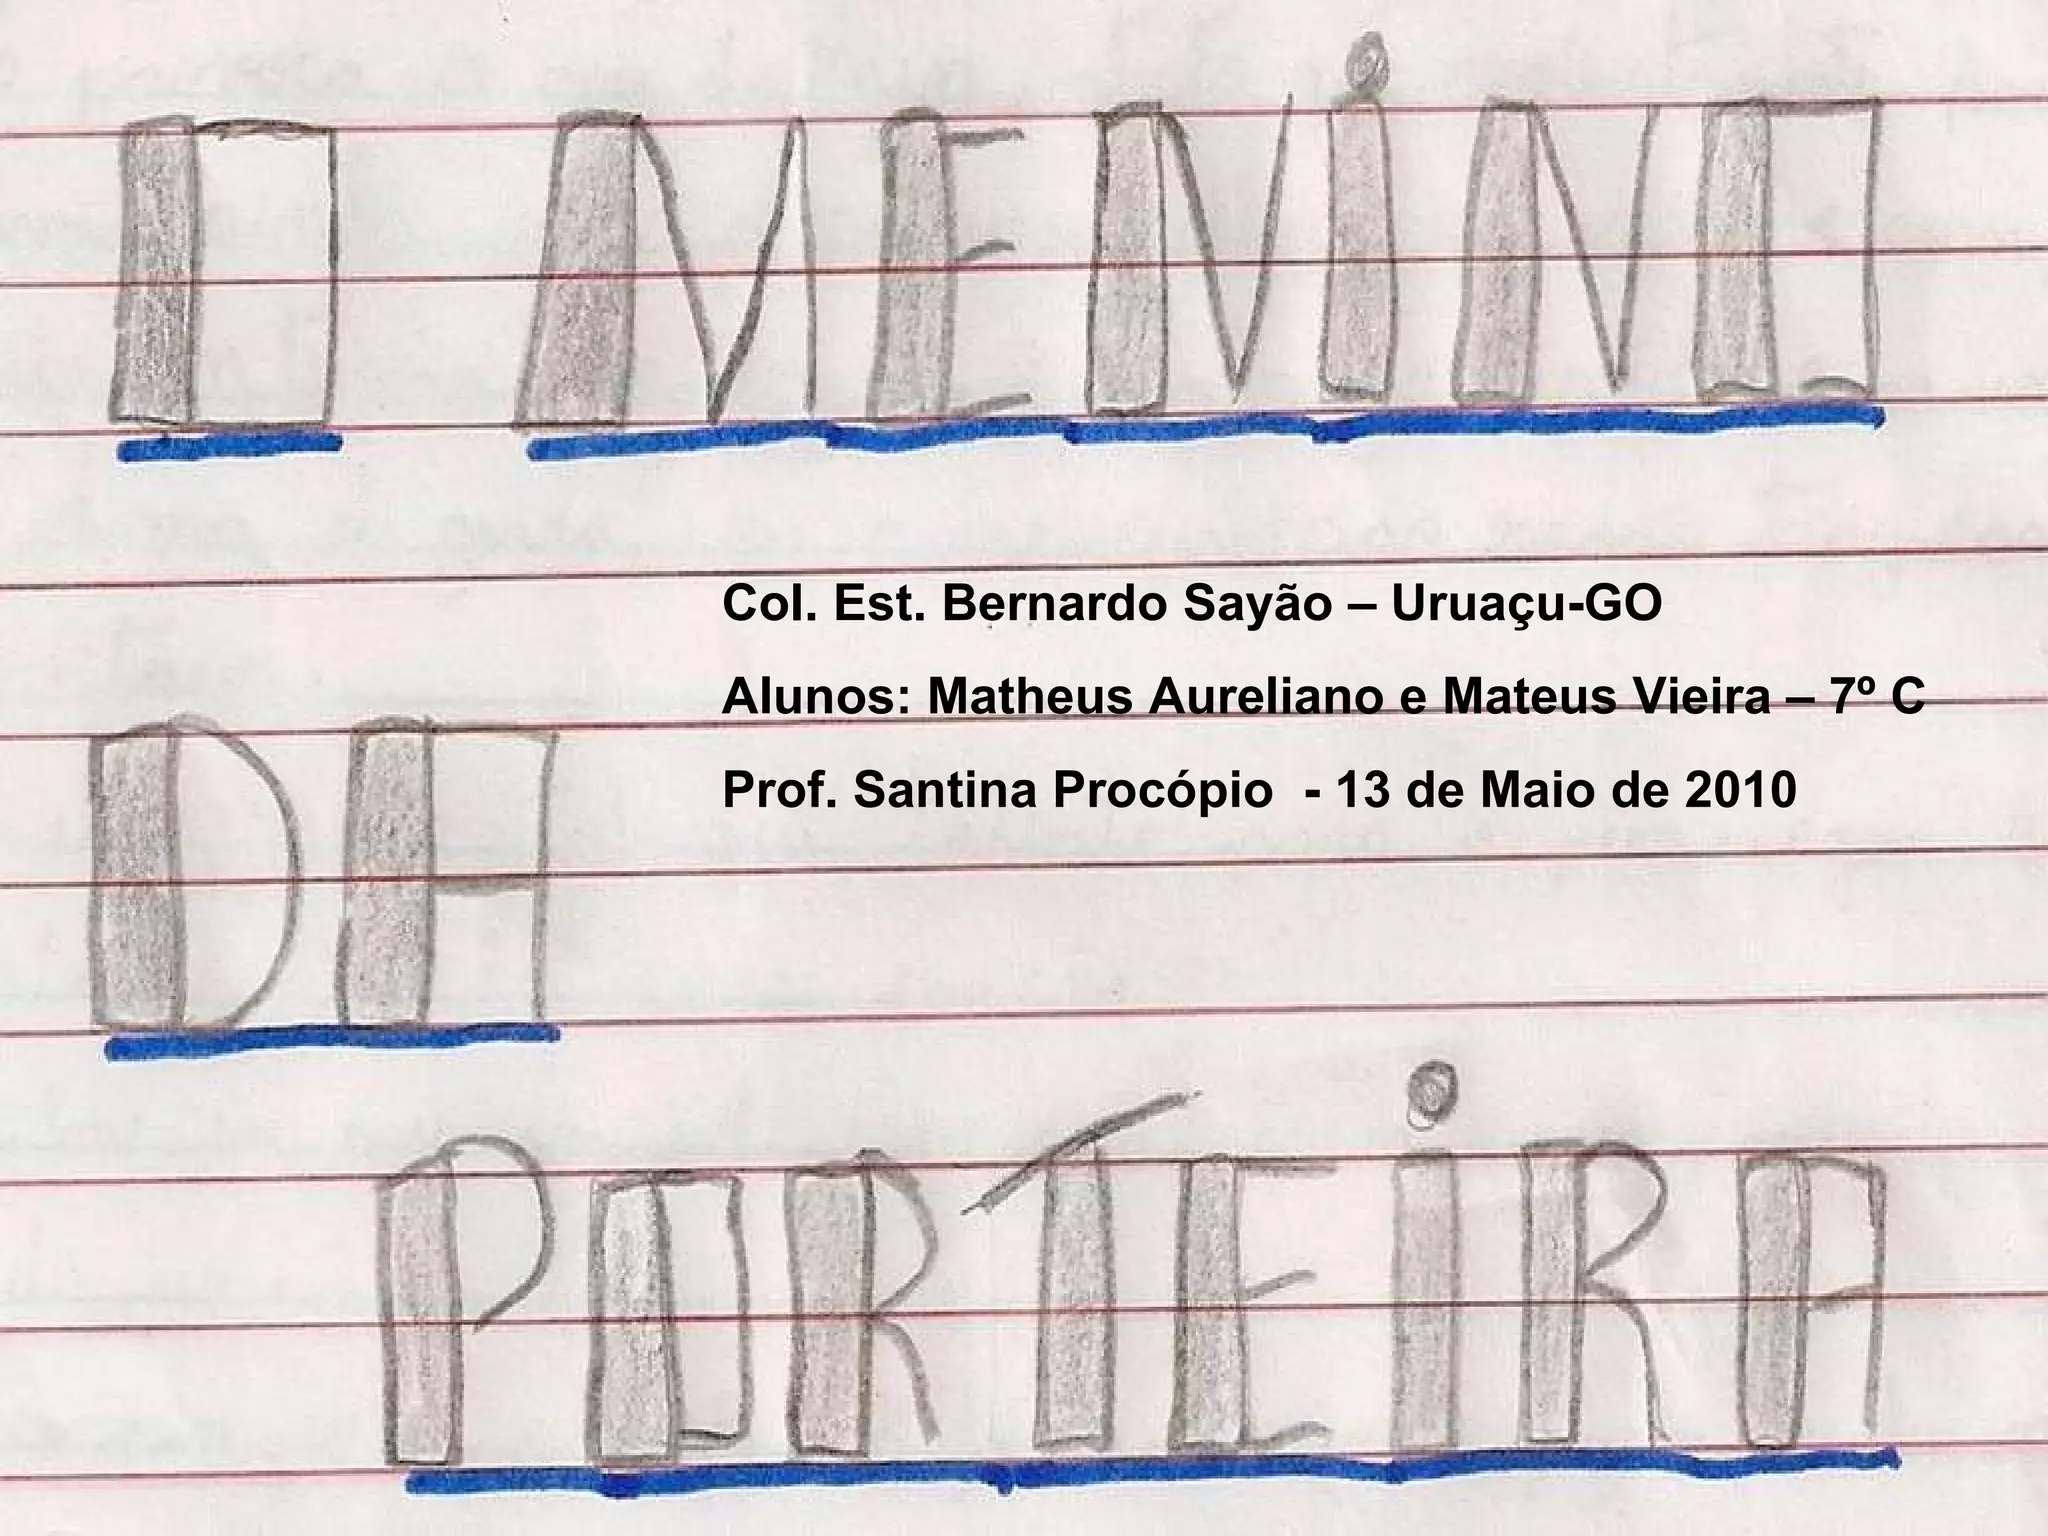 O MENiNO
Col. Est. Bernardo Sayão – Uruaçu-GO
Alunos: Matheus Aureliano e Mateus Vieira – 7º C
Prof. Santina Procópio - 13 de Maio de 2010
DA
PORTEiRA